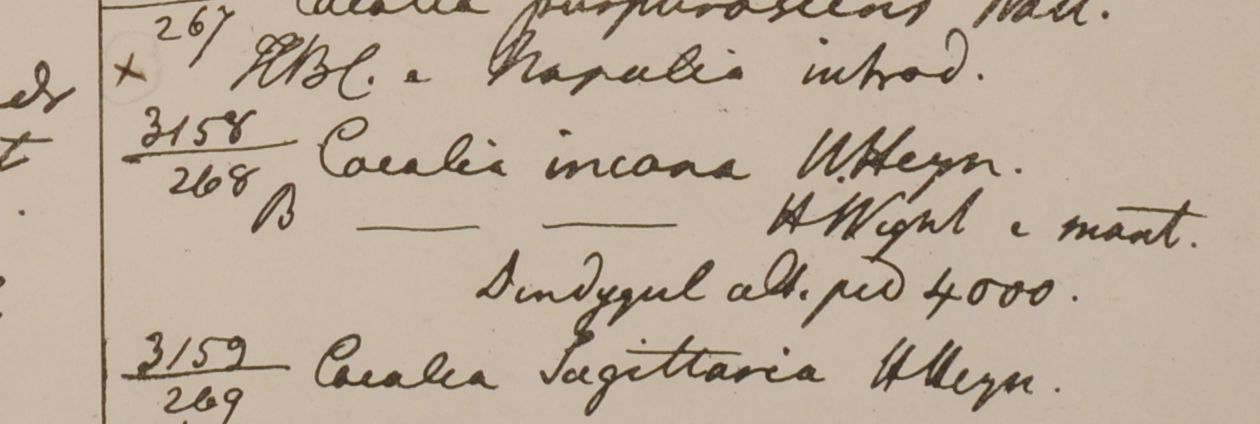 Cacalia purpurascens Wall.
267
x HBC. e Napalia introd.
3158
268 Cacalia incana H.Heyn.
B — — H Wight e mont.
Dindygul alt. ped 4000.
3159
269 Cacalia Sagittaria H Heyn.